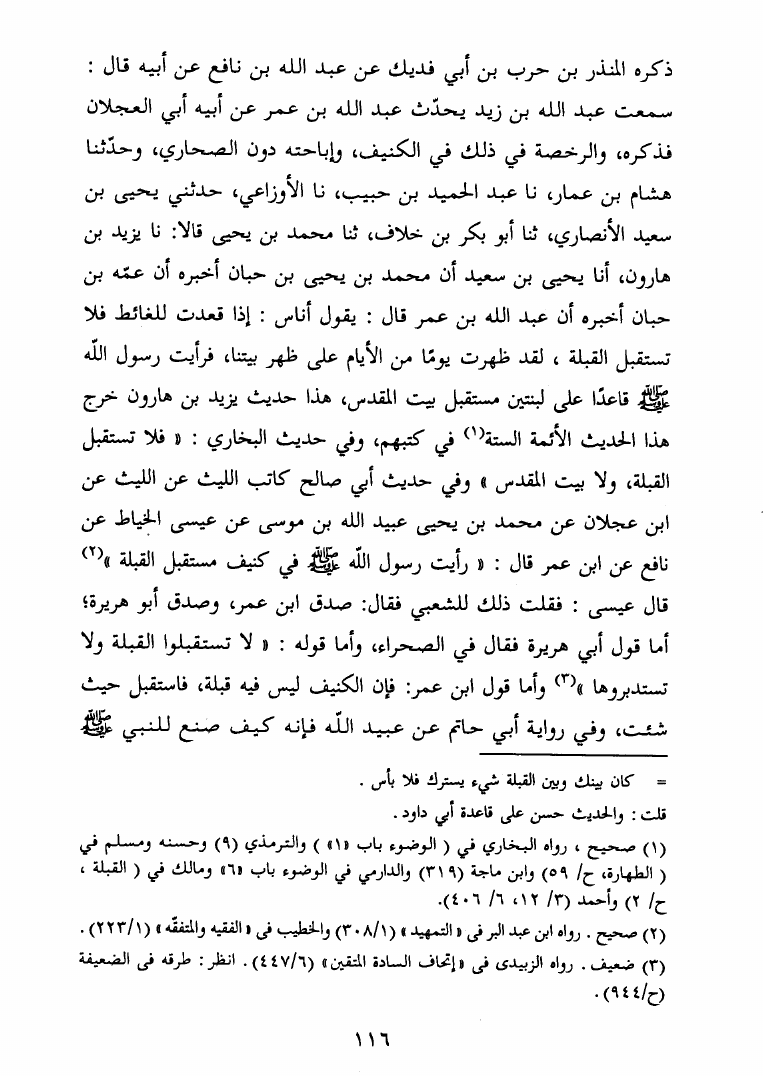 ذكره المنذر بن حرب بن أبي فديك عن عبد الله بن نافع عن أبيه قال :
سمعت عبد الله بن زيد يحدّث عبد الله بن عمر عن أبيه أبي العجلان
فذكره، والرخصة في ذلك في الكنيف، وإباحته دون الصحاري، وحدّثنا
هشام بن عمار، نا عبد الحميد بن حبيب، نا الأوزاعي، حدثني يحيى بن
سعيد الأنصاري، ثنا أبو بكر بن خلاف، ثنا محمد بن يحيى قالا: نا يزيد بن
هارون، أنا يحيى بن سعيد أن محمد بن يحيى بن حبان أخبره أن عمّه بن
حبان أخبره أن عبد الله بن عمر قال : يقول أناس : إذا قعدت للغائط فلا
تستقبل القبلة ، لقد ظهرت يومًا من الأيام على ظهر بيتنا، فرأيت رسول الله
ﷺ قاعدًا على لبنتين مستقبل بيت المقدس، هذا حديث يزيد بن هارون خرج
هذا الحديث الأئمة الستة(١) في كتبهم، وفي حديث البخاري : « فلا تستقبل
القبلة، ولا بيت المقدس » وفي حديث أبي صالح كاتب الليث عن الليث عن
ابن عجلان عن محمد بن يحيى عبيد الله بن موسى عن عيسى الخياط عن
نافع عن ابن عمر قال : « رأيت رسول الله ﷺ في كنيف مستقبل القبلة »(٢)
قال عيسى : فقلت ذلك للشعبي فقال: صدق ابن عمر، وصدق أبو هريرة؛
أما قول أبي هريرة فقال في الصحراء، وأما قوله : « لا تستقبلوا القبلة ولا
تستدبروها »(٣) وأما قول ابن عمر: فإن الكنيف ليس فيه قبلة، فاستقبل حيث
شئت، وفي رواية أبي حاتم عن عبيد الله فإنه كيف صنع للنبي ﷺ
= كان بينك وبين القبلة شيء يسترك فلا بأس .
قلت : والحديث حسن على قاعدة أبي داود .
(١) صحيح ، رواه البخاري في ( الوضوء باب «١» ) والترمذي (٩) وحسنه ومسلم في
( الطهارة، ح/ ٥٩) وابن ماجة (٣١٩) والدارمي في الوضوء باب «٦» ومالك في ( القبلة ،
ح/ ٢) وأحمد (٣/ ١٢، ٦/ ٤٠٦).
(٢) صحيح . رواه ابن عبد البر فى « التمهيد » (٣٠٨/١) والخطيب فى « الفقيه والمتفقّه » (٢٢٣/١) .
(٣) ضعيف . رواه الزبيدى فى «إتحاف السادة المتقين» (٤٤٧/٦). انظر : طرقه فى الضعيفة
(ح/٩٤٤) .
١١٦